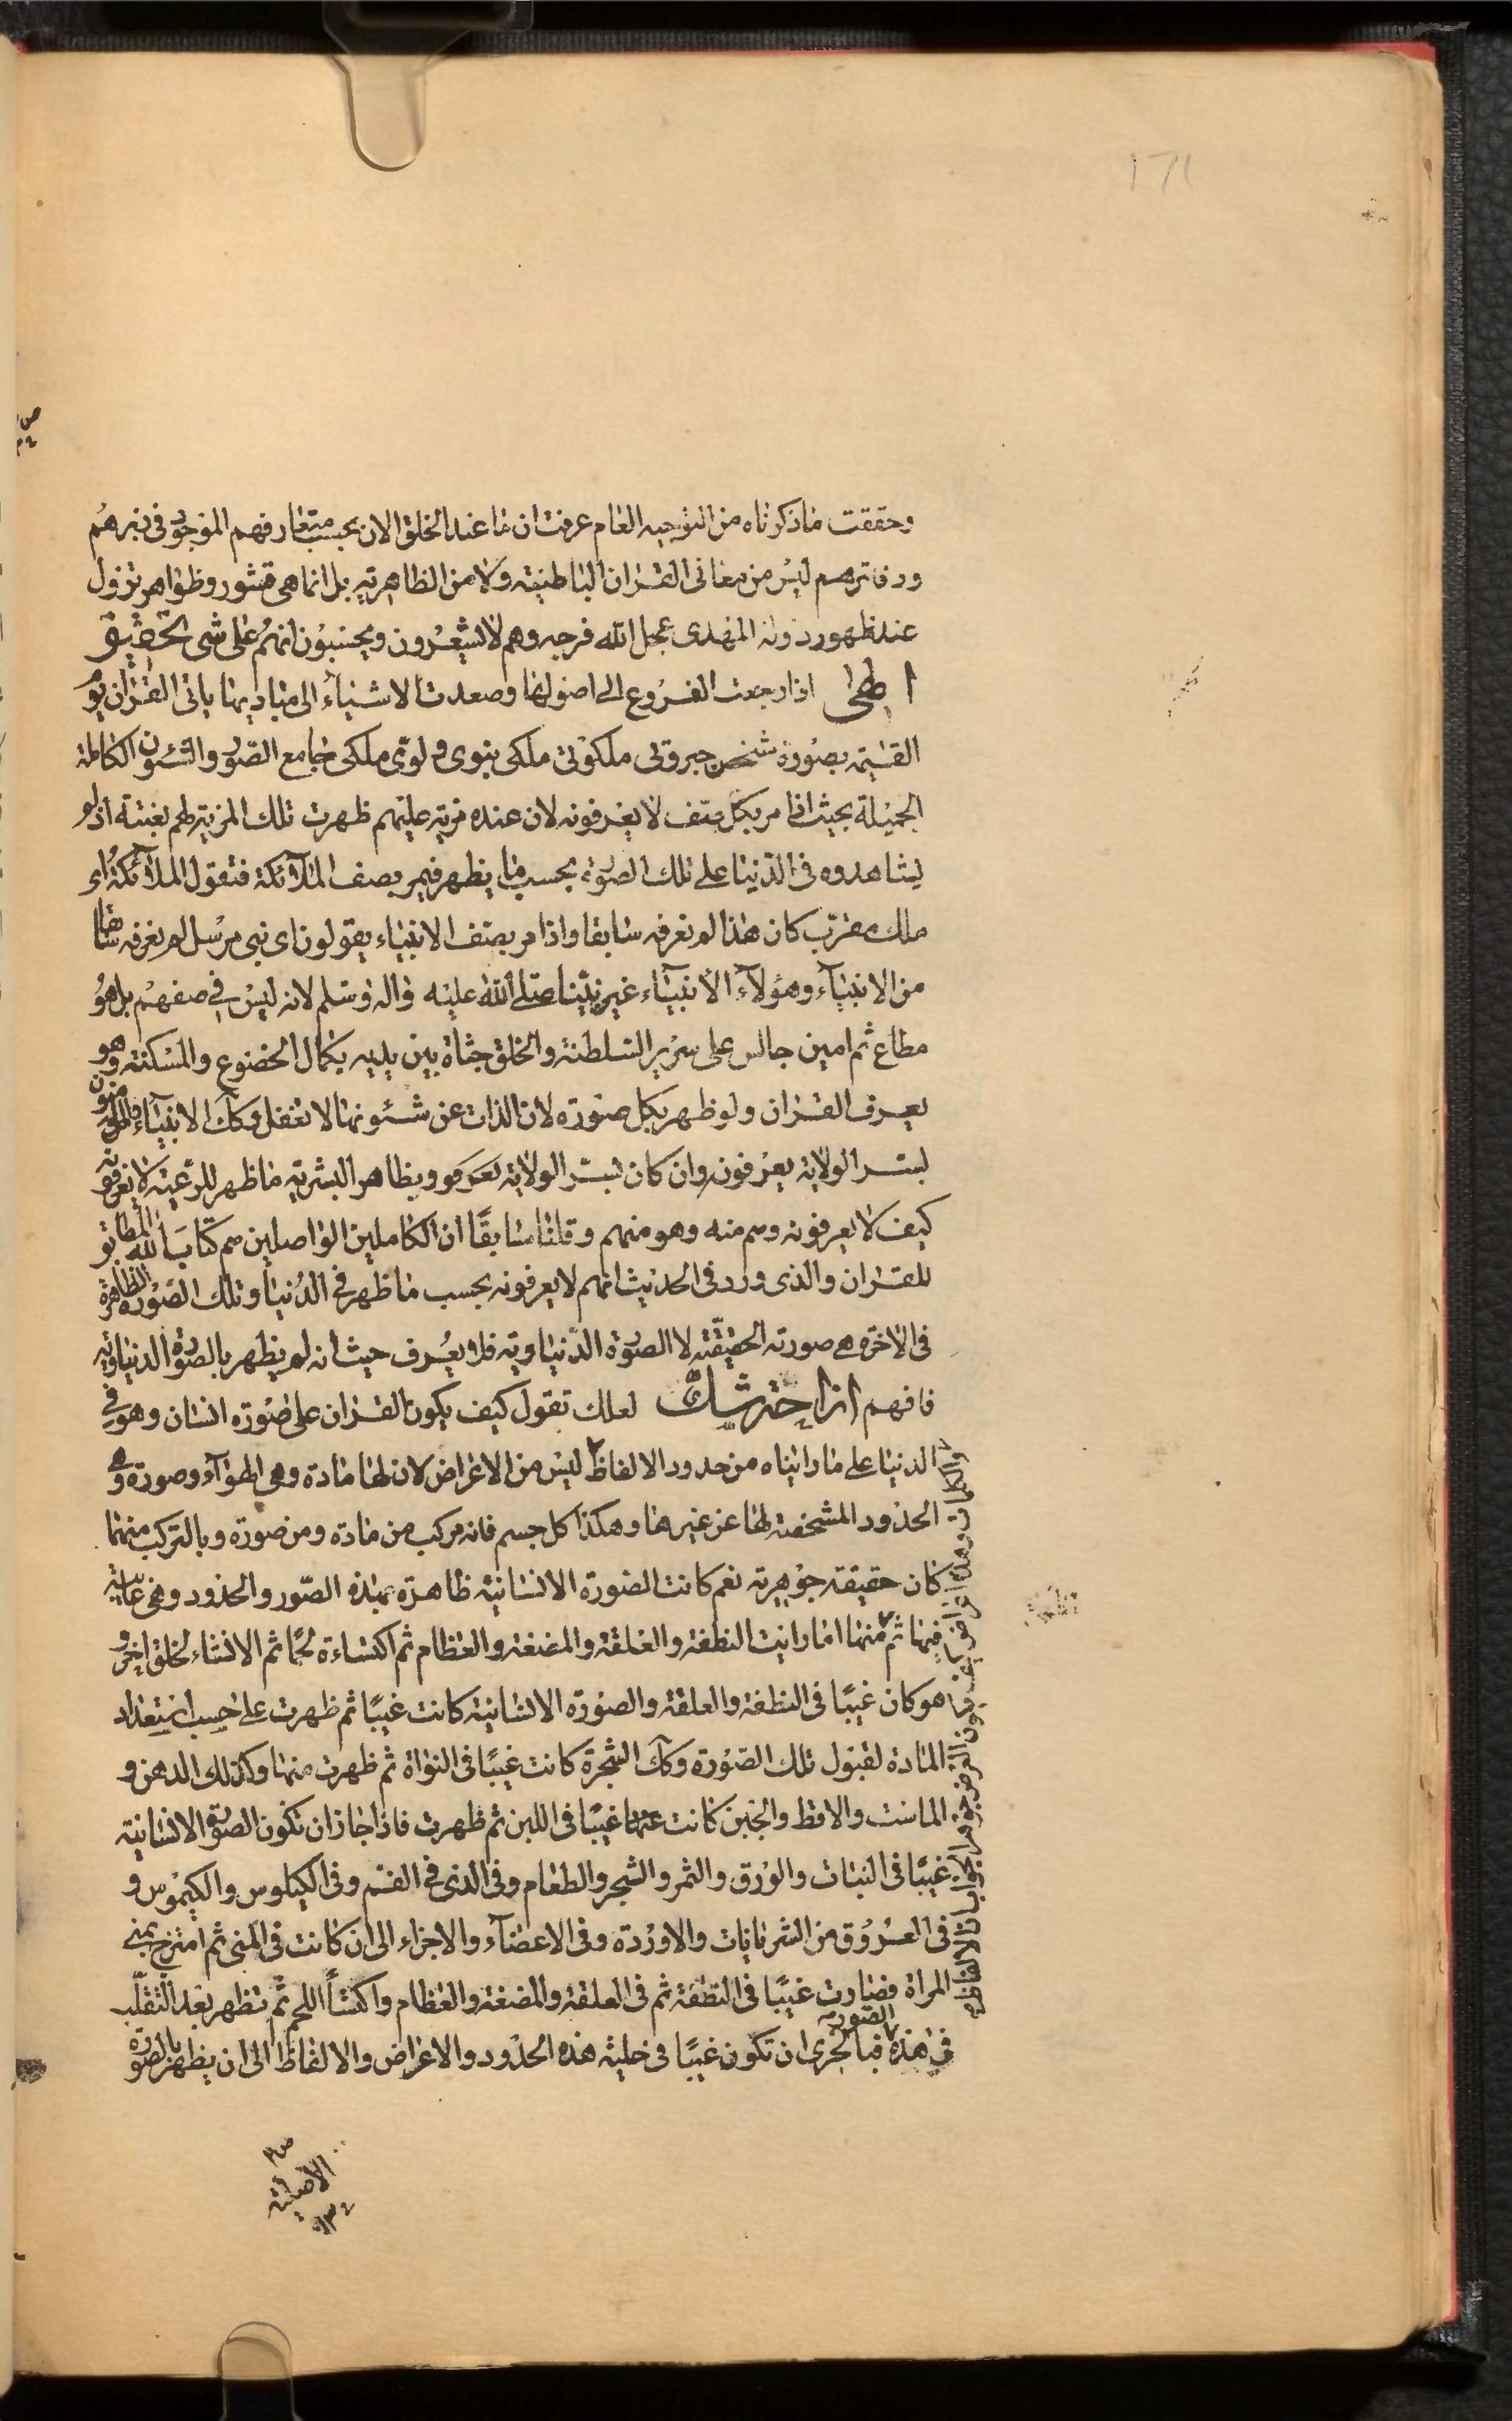 171
وحققت ما ذكرناه من التوجيه العام عرفت ان ما عند الخلق الان بحسب متعارفهم الموجود في زبرهم
ودفاترهم ليس من معاني القران الباطنية ولا من الظاهرية بل انما هي قشور وظواهر تزول
عند ظهور دولة المهدي عجل الله فرجه وهم لا يشعرون ويحسبون انهم على شئ تحقيق
اذا رجعت الفروع الى اصولها وصعدت الاشياء الى مباديها ياتي القران يوم
القيمة بصورة شخص جبروتي ملكوتي ملكي نبوي ولوي ملكي جامع الصور والشئون الكاملة
الجميلة بحيث اذا مر بكل صف لا يعرفونه لان عنده مزية عليهم ظهرت تلك المزية لهم بغتة اذ لم
يشاهدوه في الدنيا على تلك الصورة بحسب ما يظهر فيمر بصف الملائكة فتقول الملائكة اي
ملك مقرب كان هذا لم نعرفه سابقا واذا مر بصف الانبياء يقولون اي نبي مرسل لم نعرفه سابقا
من الانبياء وهؤلاء الانبياء غير نبينا صلى الله عليه واله وسلم لانه ليس في صفهم بل هو
مطاع ثم امين جالس على سرير السلطنة والخلق جثاة بين يديه بكمال الخضوع والمسكنة وهو
يعرف القران ولو ظهر بكل صورة لان الذات عن شئونها لا تغفل وكك الانبياء والمقرون
بسر الولاية يعرفونه وان كان بسر الولاية يعرفو وبظاهر البشرية ما ظهر للرعية لا يعرفونه
كيف لا يعرفونه وهم منه وهو منهم وقلنا سابقًا ان الكاملين الواصلين هم كتاب الله المطابق
للقران والذي ورد في الحديث انهم لا يعرفونه بحسب ما ظهر في الدنيا وتلك الصورة الظاهرة
في الاخرة هي صورته الحقيقية لا الصورة الدنياوية فلا يعرف حيث انه لم يظهر بالصورة الدنياوية
فافهم ازاحة شك لعلك تقول كيف يكون القران على صورة انسان وهو في
الدنيا على ما رايناه من حدود الالفاظ ليس من الاعراض لان لها مادة وهي الهواء وصورة وهي
الحدود المشخصة لها عن غيرها وهكذا كل جسم فانه مركب من مادة ومن صورة وبالتركب منهما
كان حقيقة جوهرية نعم كانت الصورة الانسانية ظاهرة بهذه الصور والحدود وهي غائبة
فيها ثم منها اما رايت النطفة والعلقة والمضغة والعظام ثم اكتساءة لحما ثم الانشاء لخلق اخر و
هو كان غيبًا في النطفة والعلقة والصورة الانسانية كانت غيبًا ثم ظهرت على حسب استعداد
المادة لقبول تلك الصورة وكك الشجرة كانت غيبًا في النواة ثم ظهرت منها وكذلك الدهن و
الماست والاقط والجبن كانت غيبًا في اللبن ثم ظهرت فاذا جاز ان تكون الصورة الانسانية
غيبًا في النبات والورق والثمر والشجر والطعام وفي الذي في الفم وفي الكيلوس والكيموس و
في العروق من الشريانات والاوردة وفي الاعضاء والاجزاء الى ان كانت في المني ثم امتزج بمني
المراة فصارت غيبًا في النطفة ثم في العلقة والمضغة والعظام واكتساء اللحم ثم تظهر بعد التقلب
في هذه الصور فبالحري ان تكون غيبًا في خلية هذه الحدود والاعراض والالفاظ الى ان يظهر بالصورة
الاصلية